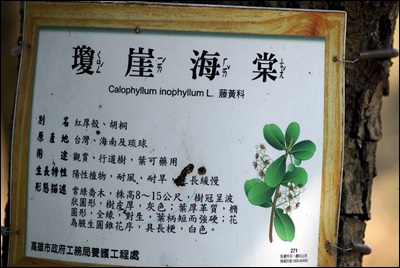 瓊崖海棠
Calophyllum inophyllum L. 藤黃科
別名 紅厚殼、胡桐
原產地 台灣、海南及琉球
用途 觀賞、行道樹，葉可藥用
生長特性 陽性植物，耐風，耐旱，生長緩慢
形態描述 常綠喬木，株高8～15公尺，樹冠呈波
狀圓形，樹皮厚，灰色；葉厚革質，橢
圓形，全緣，對生，葉柄短而強硬；花
為腋生圓錐花序，具長梗，白色。
高雄市政府工務局養護工程處
271